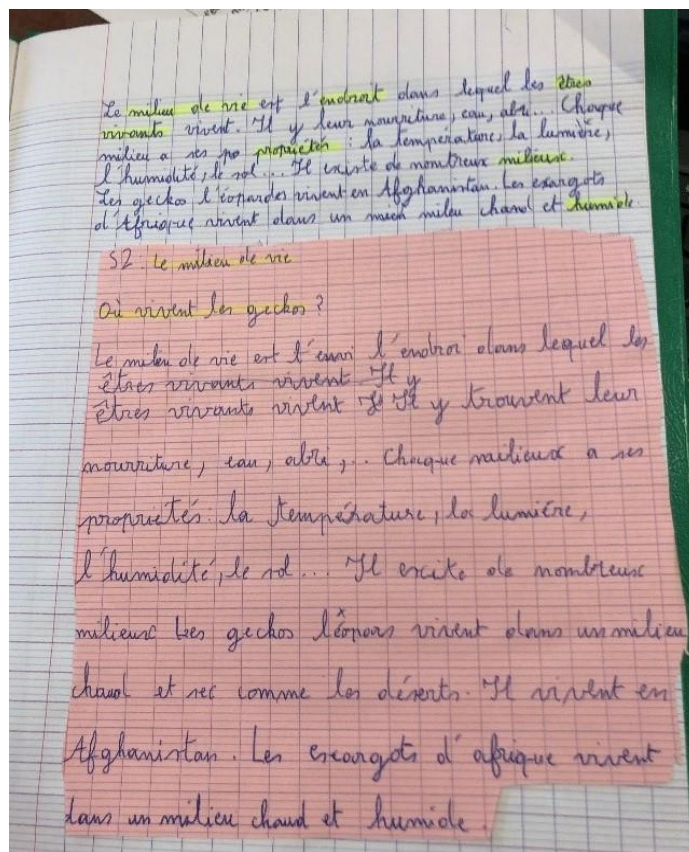 Le milieu de vie est l'endroit dans lequel les êtres
vivants vivent. Il y leur nourriture, eau, abri... Chaque
milieu a ses po propriétés : la température, la lumière,
l'humidité, le sol... Il existe de nombreux milieux.
Les geckos l'éopardes vivent en Afghanistan. Les escargots
d'Afrique vivent dans un mieu milieu chaud et humide.
S2. Le milieu de vie
Où vivent les geckos ?
Le milieu de vie est l'envi l'endroi dans lequel les
êtres vivants vivent Il y
êtres vivants vivent Il y trouvent leur
nourriture, eau, abri,.. Chaque mailieux a ses
propriétés: la température, la lumière,
l'humidité, le sol... Il excite de nombreux
milieux Les geckos léopars vivent dans un milieu
chaud et sec comme les déserts. Il vivent en
Afghanistan. Les escargots d'afrique vivent
dans un milieu chaud et humide.